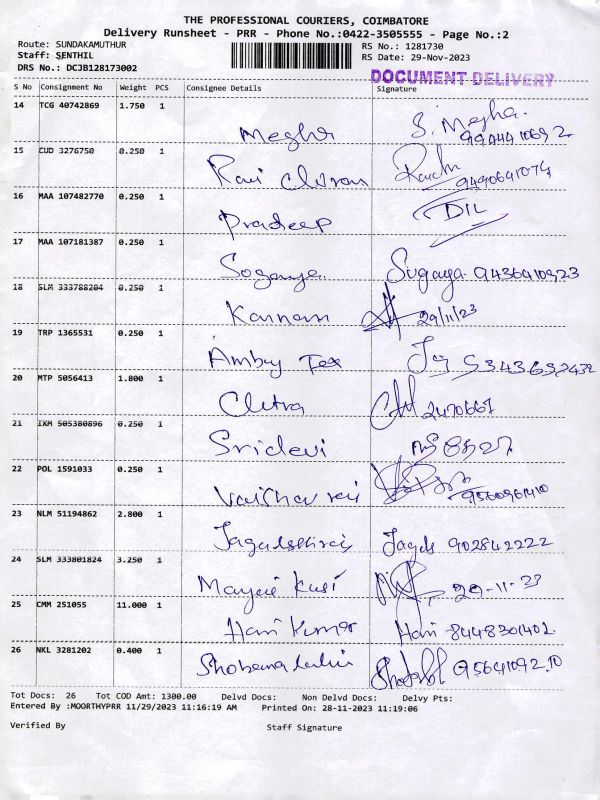 THE PROFESSIONAL COURIERS, COIMBATORE
Delivery Runsheet - PRR - Phone No.:0422-3505555 - Page No.:2
Route: SUNDAKAMUTHUR RS No.: 1281730
Staff: SENTHIL RS Date: 29-Nov-2023
DRS No.: DCJB128173002 DOCUMENT DELIVERY
S No Consignment No Weight PCS Consignee Details Signature
14 TCG 40742869 1.750 1
Megha S. Megha
15 CUD 3276750 0.250 1
Ravi
16 MAA 107482770 0.250 1
Pradeep DIL
17 MAA 107181387 0.250 1
Suganya 9436410923
18 SLM 333788204 0.250 1
Kannan 29/11/23
19 TRP 1365531 0.250 1
Ambuy Tex
20 MTP 5056413 1.800 1
Chitra 2470667
21 IXM 505380896 0.250 1
Sridevi
22 POL 1591033 0.250 1
23 NLM 51194862 2.800 1
902842222
24 SLM 333801824 3.250 1
29-11-23
25 CMM 251055 11.000 1
Hari Kumar Hari 8448301402
26 NKL 3281202 0.400 1
Shobana
Tot Docs: 26 Tot COD Amt: 1300.00 Delvd Docs: Non Delvd Docs: Delvy Pts:
Entered By :MOORTHYPRR 11/29/2023 11:16:19 AM Printed On: 28-11-2023 11:19:06
Verified By Staff Signature